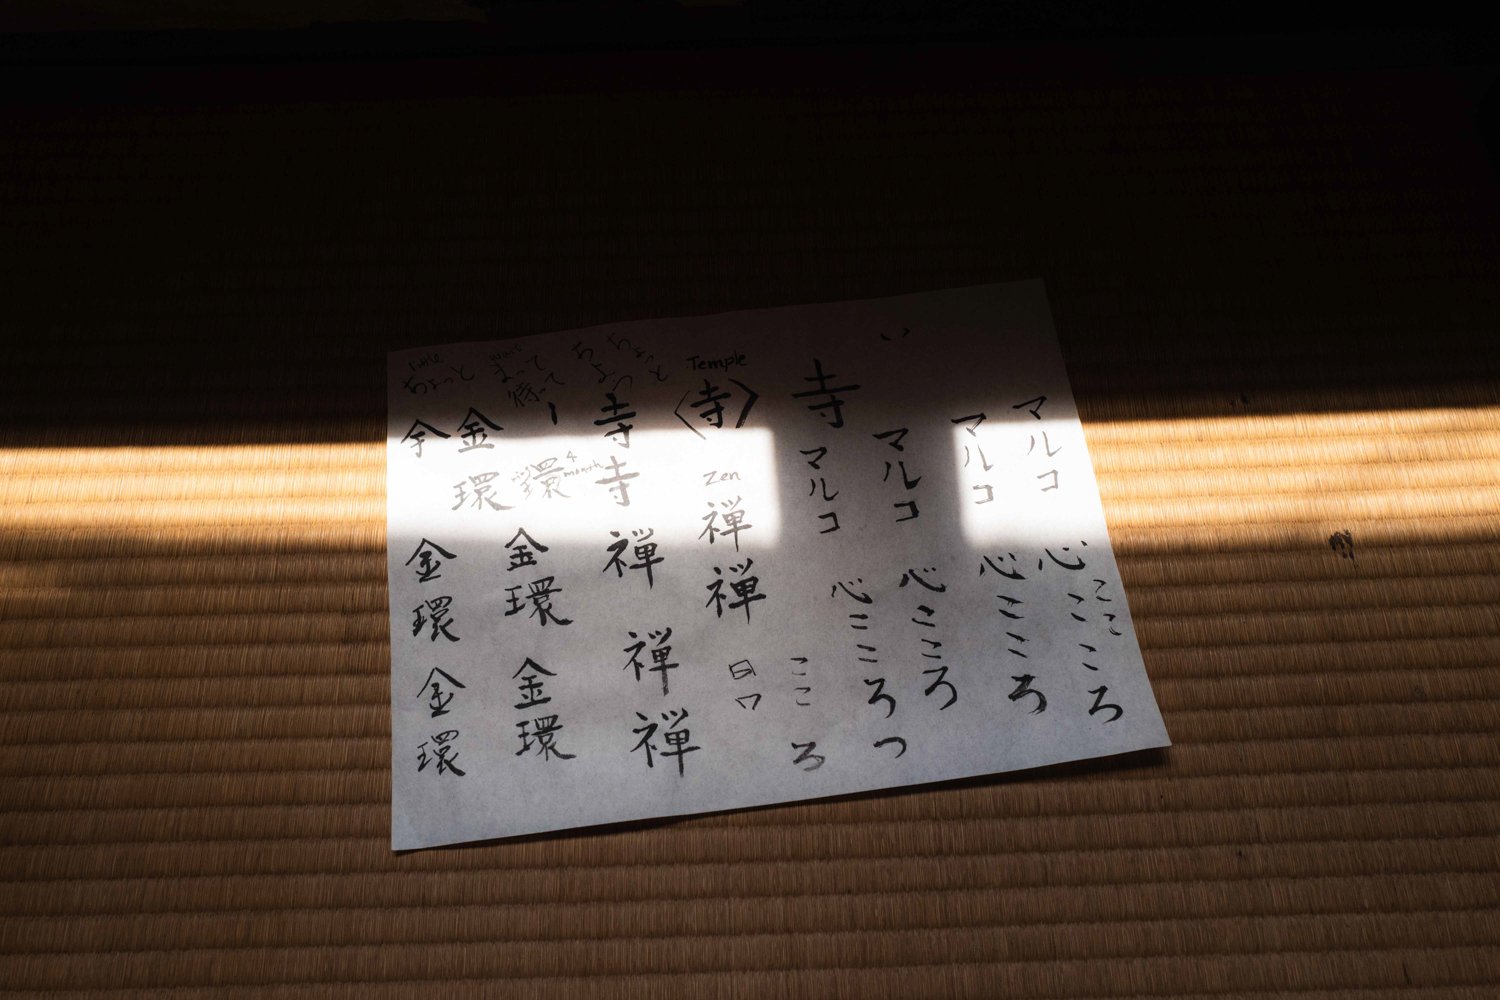 い
マルコ
心こころ
ここ
マルコ
心こころ
寺
マルコ
心こころ
つ
マルコ
心こころ
ここ
ろ
Temple
〈寺〉
Zen
禅
禅
日
ワ
ちょっと
ちょっ
寺
寺
禅
禅
禅
wait
まって
待って
環
4
month
金環
金環
little
ちょっと
金
金
環
金環
金環